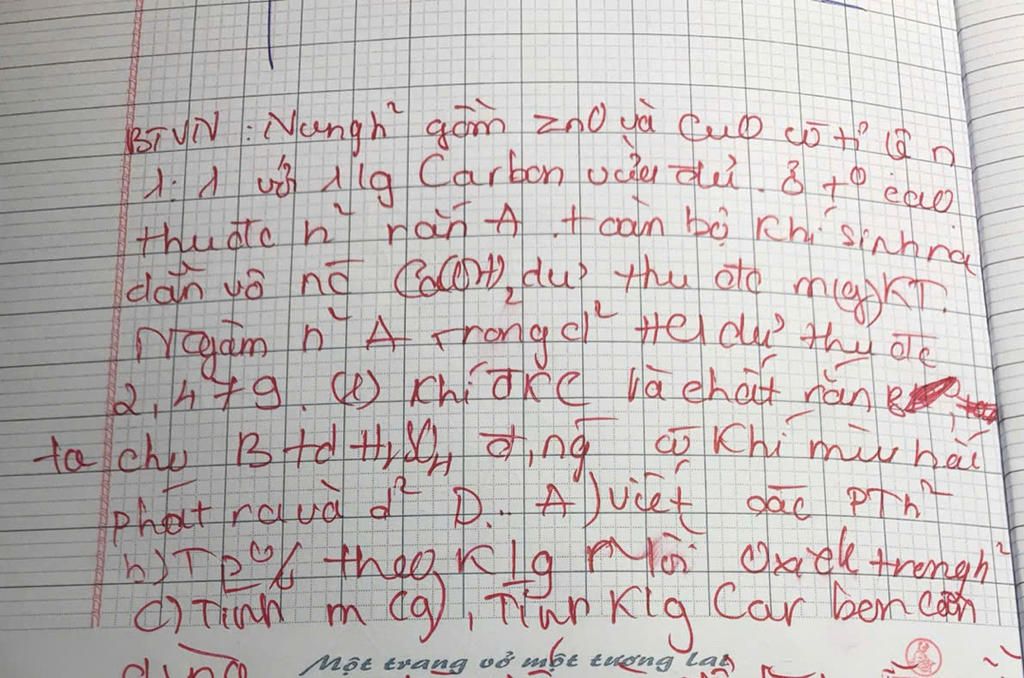 BTVN: Nungh² gồm ZnO và CuO có tỉ lệ n
1:1 với 1lg Carbon vừa đủ. Ở t⁰ cao
thu đc h² rắn A. toàn bộ khí sinh ra
dẫn vô nc Ca(OH)₂ dư thu đc m(g)KT.
Ngâm h² A trong d² HCl dư thu đc
2,479. (l) khí ĐKC và chất rắn B
ta cho B td H₂SO₄ đ,ng có khí mùi hắc
phát ra và d² D.. A) viết các PTh²
b) TP% theo Klg mỗi Oxide trongh²
C) Tính m (g), Tính Klg Carbon cần
dùng
Một trang vở một tương lai